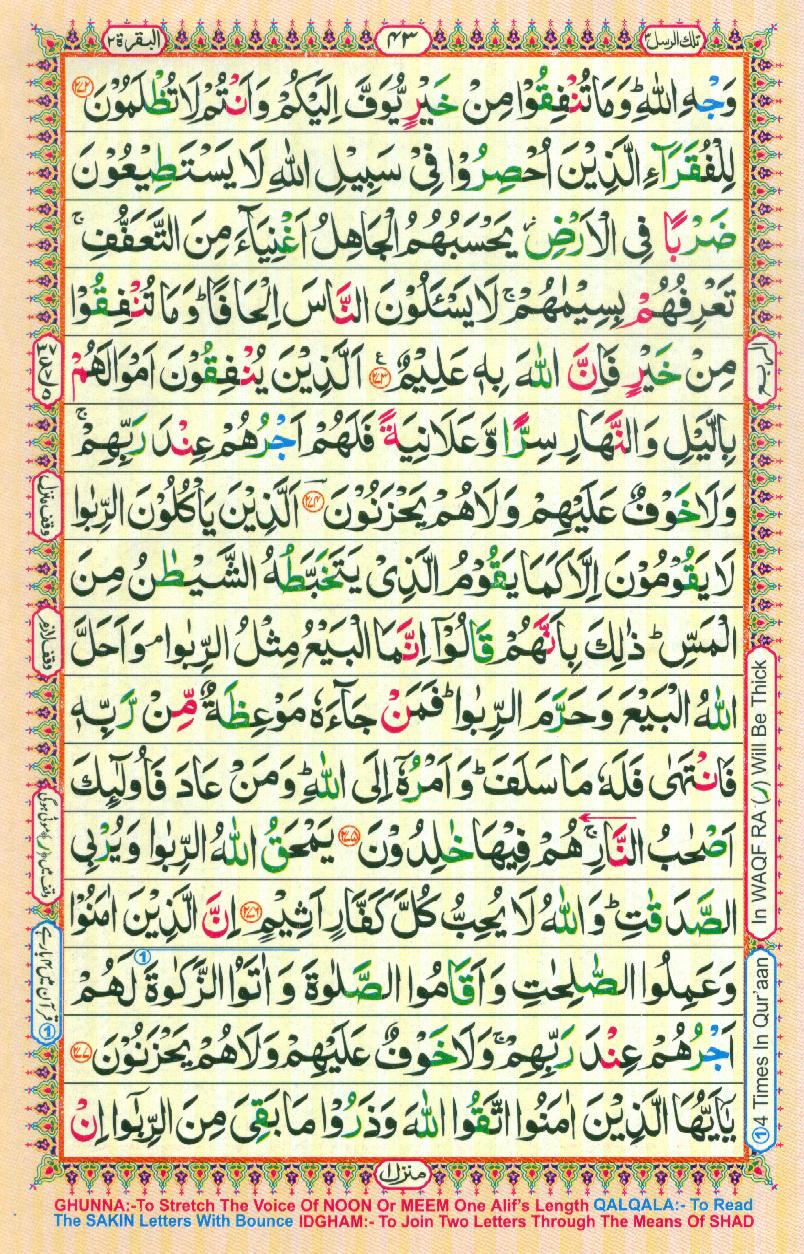 البقرة ٢
٤٣
تلك الرسل ٣
وَجْهِ اللّٰهِ ؕ وَمَا تُنْفِقُوْا مِنْ خَيْرٍ يُّوَفَّ اِلَيْكُمْ وَاَنْتُمْ لَا تُظْلَمُوْنَ ﴿۲۷۲﴾
لِلْفُقَرَآءِ الَّذِيْنَ اُحْصِرُوْا فِىْ سَبِيْلِ اللّٰهِ لَا يَسْتَطِيْعُوْنَ
ضَرْبًا فِى الْاَرْضِ ۫ يَحْسَبُهُمُ الْجَاهِلُ اَغْنِيَآءَ مِنَ التَّعَفُّفِ ۚ
تَعْرِفُهُمْ بِسِيْمٰهُمْ ۚ لَا يَسْئَلُوْنَ النَّاسَ اِلْحَافًا ؕ وَمَا تُنْفِقُوْا
مِنْ خَيْرٍ فَاِنَّ اللّٰهَ بِهٖ عَلِيْمٌ ﴿۲۷۳﴾ اَلَّذِيْنَ يُنْفِقُوْنَ اَمْوَالَهُمْ
بِالَّيْلِ وَالنَّهَارِ سِرًّا وَّعَلَانِيَةً فَلَهُمْ اَجْرُهُمْ عِنْدَ رَبِّهِمْ ۚ
وَلَا خَوْفٌ عَلَيْهِمْ وَلَا هُمْ يَحْزَنُوْنَ ﴿۲۷۴﴾ اَلَّذِيْنَ يَاْكُلُوْنَ الرِّبٰوا
لَا يَقُوْمُوْنَ اِلَّا كَمَا يَقُوْمُ الَّذِىْ يَتَخَبَّطُهُ الشَّيْطٰنُ مِنَ
الْمَسِّ ؕ ذٰلِكَ بِاَنَّهُمْ قَالُوْٓا اِنَّمَا الْبَيْعُ مِثْلُ الرِّبٰوا ۘ وَاَحَلَّ
اللّٰهُ الْبَيْعَ وَحَرَّمَ الرِّبٰوا ؕ فَمَنْ جَآءَهٗ مَوْعِظَةٌ مِّنْ رَّبِّهٖ
فَانْتَهٰى فَلَهٗ مَا سَلَفَ ؕ وَاَمْرُهٗٓ اِلَى اللّٰهِ ؕ وَمَنْ عَادَ فَاُولٰٓئِكَ
اَصْحٰبُ النَّارِ ۚ هُمْ فِيْهَا خٰلِدُوْنَ ﴿۲۷۵﴾ يَمْحَقُ اللّٰهُ الرِّبٰوا وَيُرْبِى
الصَّدَقٰتِ ؕ وَاللّٰهُ لَا يُحِبُّ كُلَّ كَفَّارٍ اَثِيْمٍ ﴿۲۷۶﴾ اِنَّ الَّذِيْنَ اٰمَنُوْا
وَعَمِلُوا الصّٰلِحٰتِ وَاَقَامُوا الصَّلٰوةَ وَاٰتَوُا الزَّكٰوةَ لَهُمْ
اَجْرُهُمْ عِنْدَ رَبِّهِمْ ۚ وَلَا خَوْفٌ عَلَيْهِمْ وَلَا هُمْ يَحْزَنُوْنَ ﴿۲۷۷﴾
يٰٓاَيُّهَا الَّذِيْنَ اٰمَنُوا اتَّقُوا اللّٰهَ وَذَرُوْا مَا بَقِىَ مِنَ الرِّبٰٓوا اِنْ
الربع
In WAQF RA (ر) Will Be Thick
①4 Times In Qur'aan
وقف منزل
وقف لازم
منزل ١
GHUNNA:-To Stretch The Voice Of NOON Or MEEM One Alif's Length QALQALA:- To Read
The SAKIN Letters With Bounce IDGHAM:- To Join Two Letters Through The Means Of SHAD